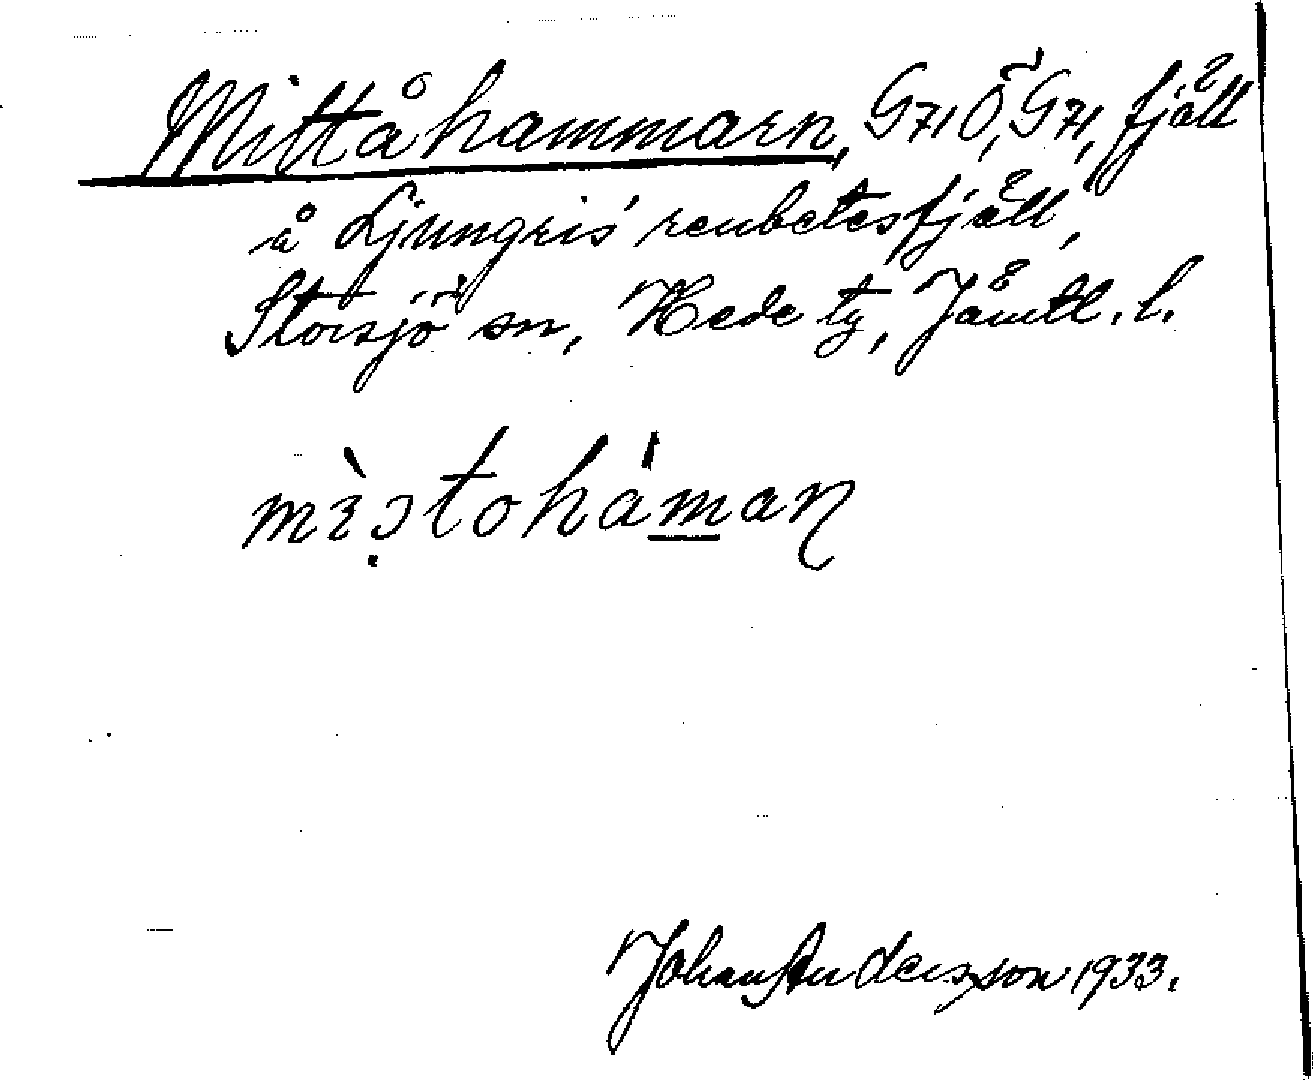 Mittåhammarn, G71Ö, G71, fjäll
å Ljungris' renbetesfjäll,
Storsjö sn, Hede tg, Jämtl. l.
Johan Andersson 1933.